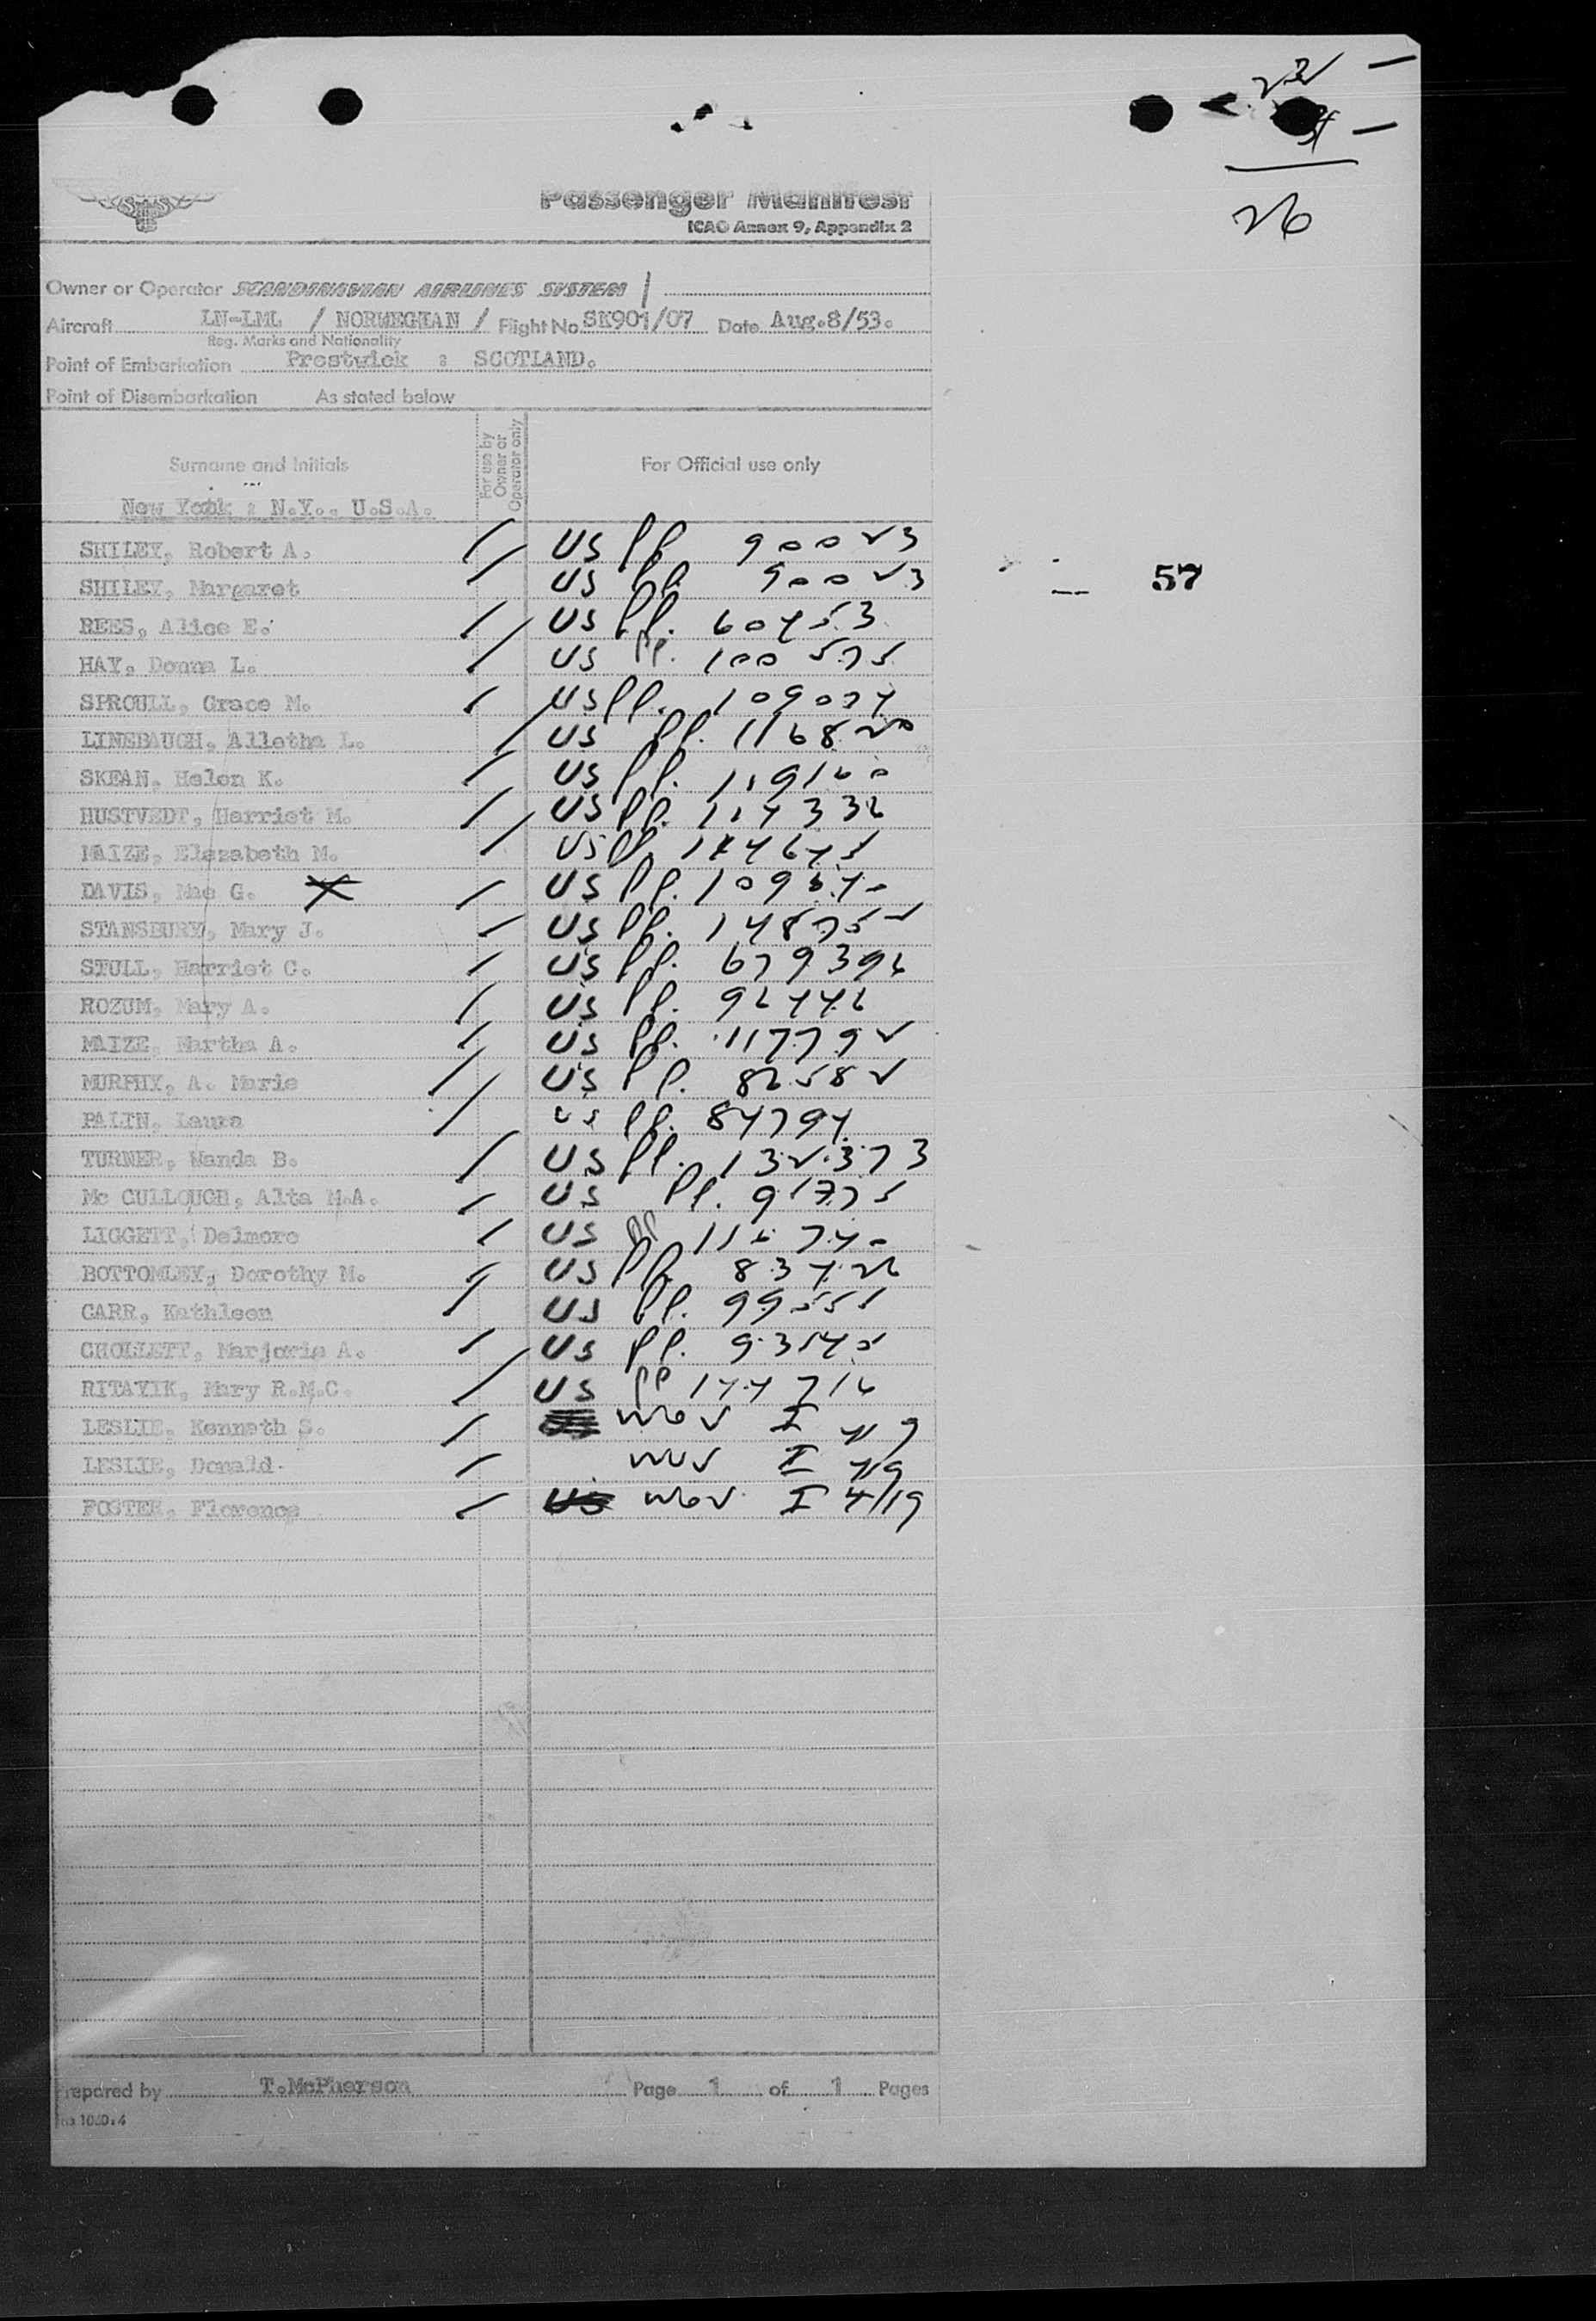 26
Passenger Manifest
ICAO Annex 9, Appendix 2
Owner or Operator SCANDINAVIAN AIRLINES SYSTEM
Aircraft LN-LML / NORWEGIAN / Flight No SK901/07 Date Aug.8/53.
Reg. Marks and Nationality
Point of Embarkation Prestwick : SCOTLAND.
Point of Disembarkation As stated below
Surname and Initials For use by Owner or Operator only For Official use only
New York : N.Y.. U.S.A.
SHILEY, Robert A. US pp. 90023
SHILEY, Margaret US pp. 90023
57
REES, Alice E. US pp. 60453
HAY, Donna L. US pp. 100575
SPROULL, Grace M. US pp. 109074
LINEBAUGH, Alletha L. US pp. 116820
SKEAN, Helen K. US pp. 119160
HUSTVEDT, Harriet M. US pp. 114336
MAIZE, Elezabeth M. US pp.
DAVIS, Mae G. X US pp.
STANSBURY, Mary J. US pp.
STULL, Harriet C. US pp. 679396
ROZUM, Mary A. US pp. 96446
MAIZE, Martha A. US pp. 117792
MURPHY, A. Marie US pp. 86582
PALIN, Laura US pp. 84794
TURNER, Wanda B. US pp. 132373
Mc CULLOUGH, Alta M.A. US pp. 91775
LIGGETT, Delmore US pp
BOTTOMLEY, Dorothy M. US pp. 83426
CARR, Kathleen US pp. 99555
CHOLLETT, Marjorie A. US pp. 93145
RITAVIK, Mary R.M.C. US pp 144716
LESLIE, Kenneth S. I
LESLIE, Donald. I
FOSTER, Florence US I 4/19
Prepared by T.McPherson Page 1 of 1 Pages